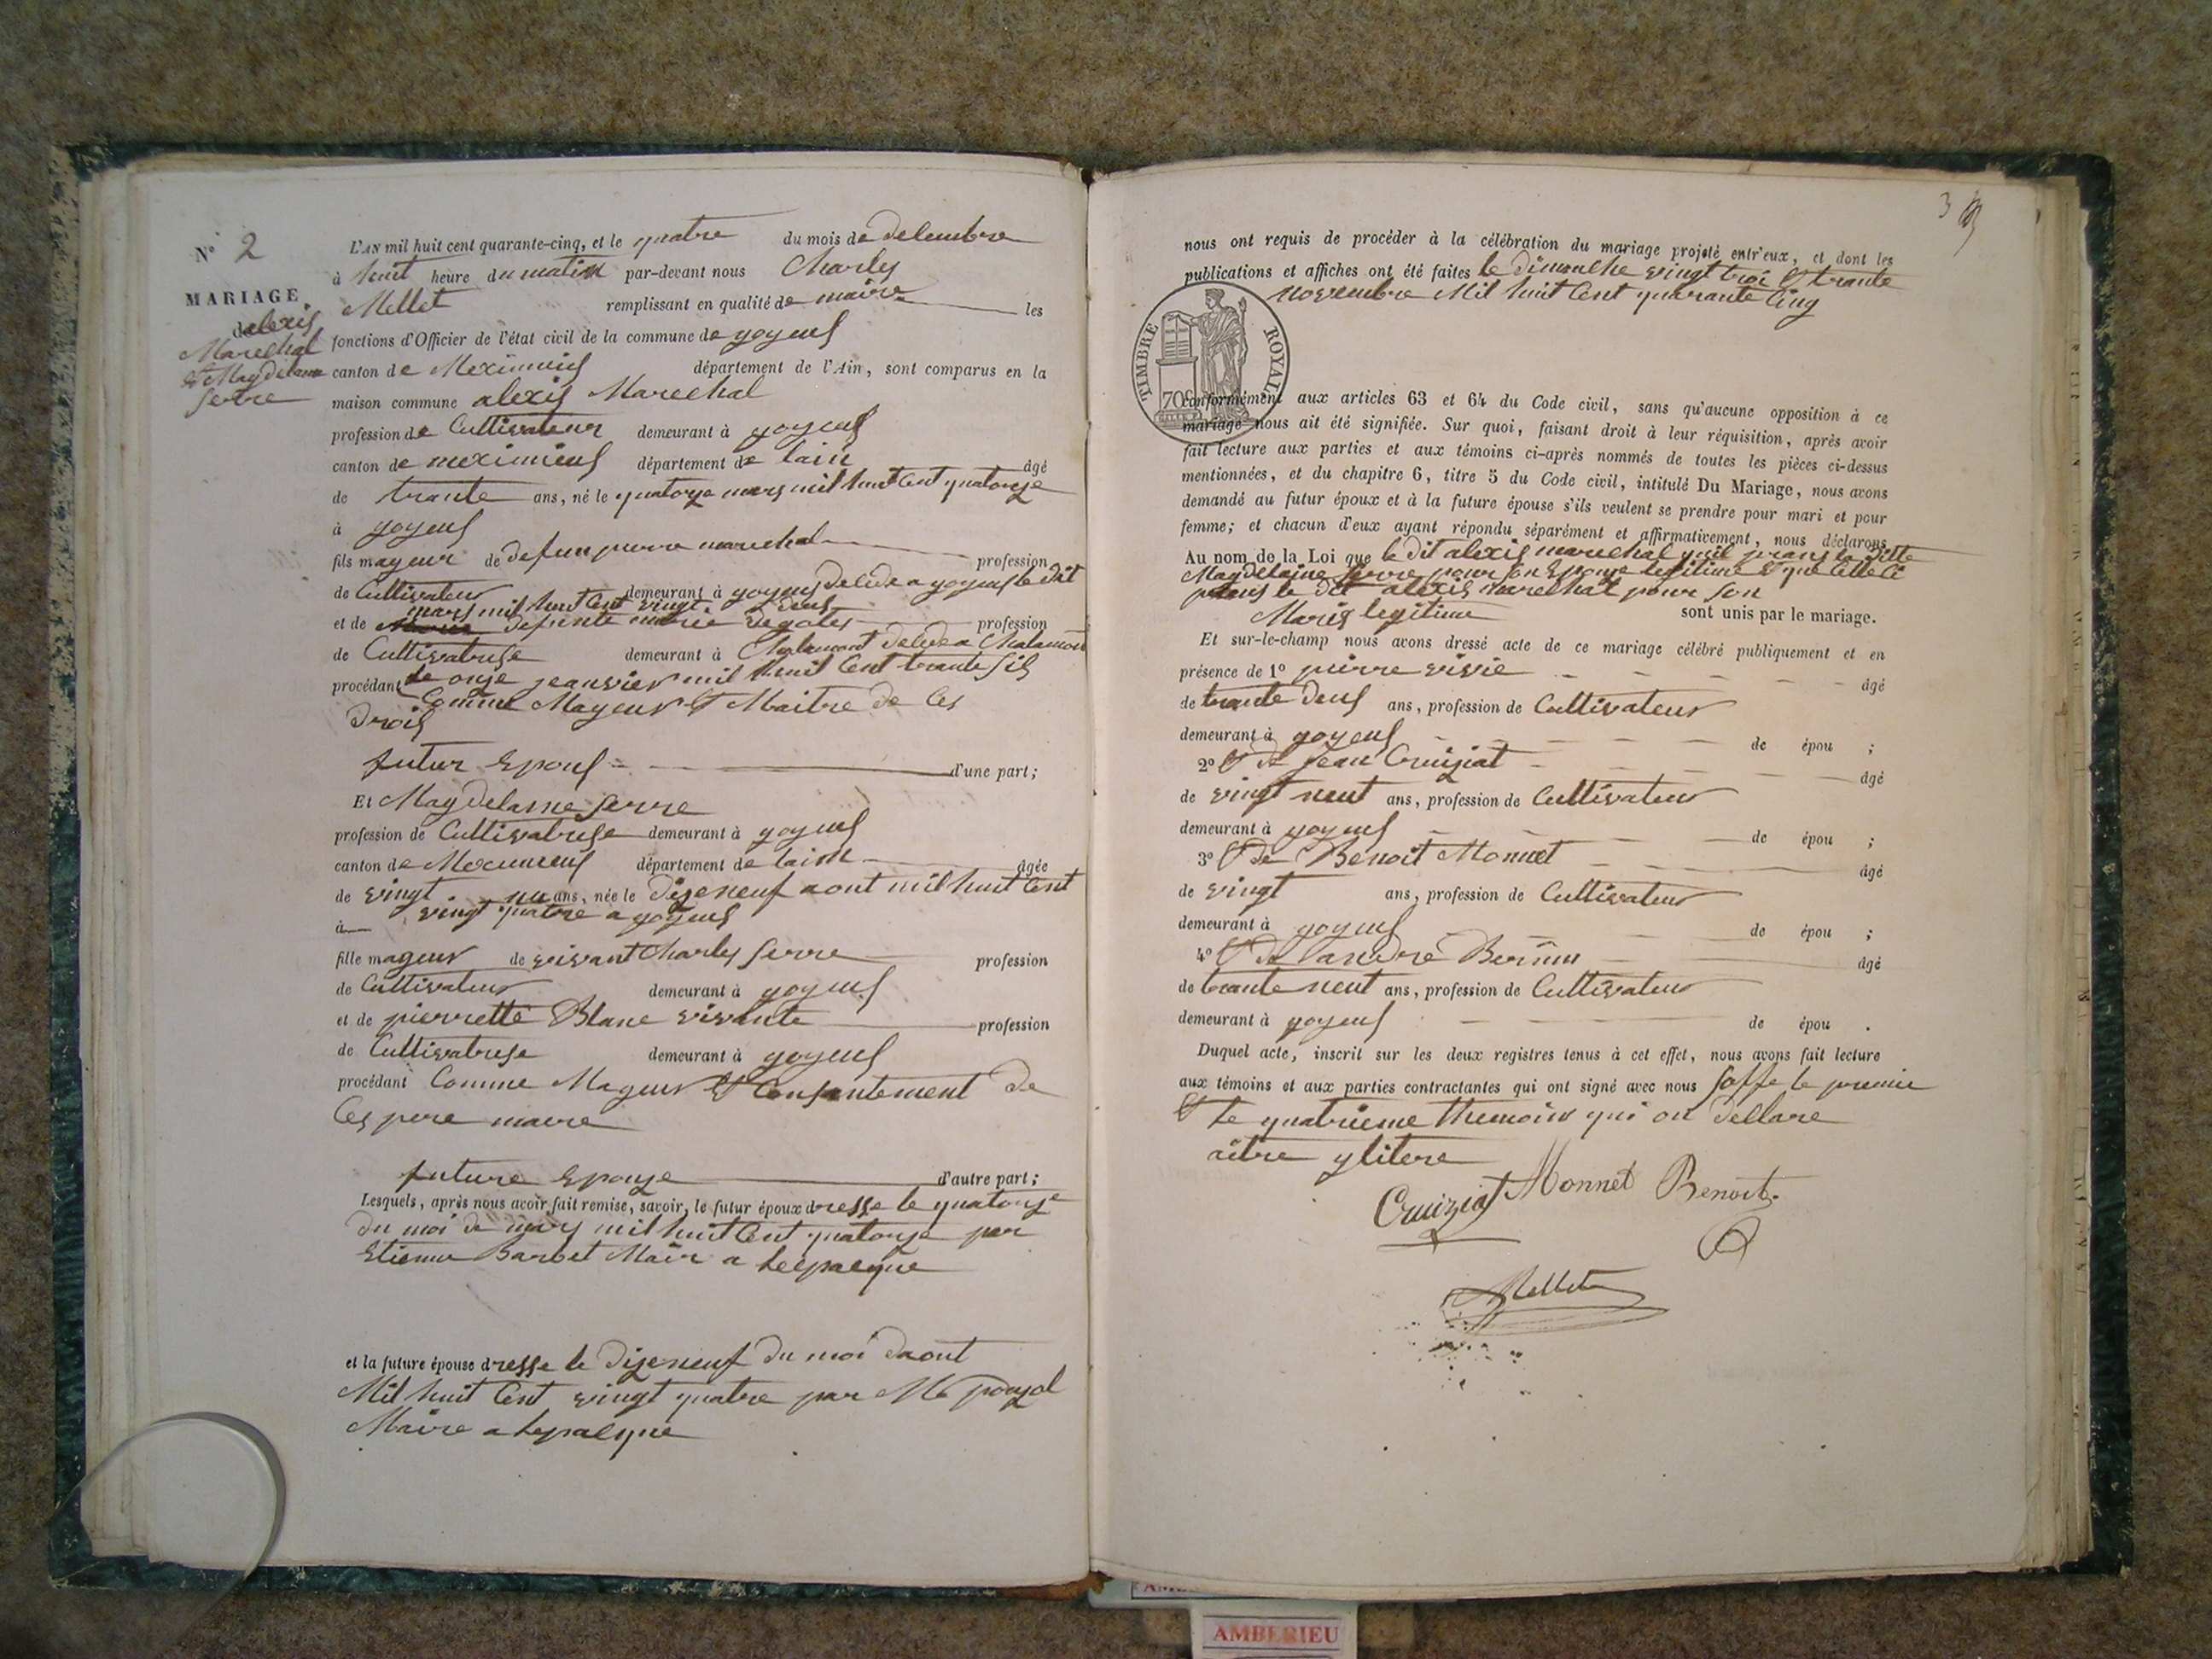 N° 2
MARIAGE
d'alexis
Marechal
et Magdelaine
Serre
L'AN mil huit cent quarante-cinq, et le quatre du mois de delembre
à huit heure du matin par-devant nous Charles
Mellet remplissant en qualité de maire les
fonctions d'Officier de l'état civil de la commune de joyeus
canton de Meximieus département de l'Ain, sont comparus en la
maison commune alexis Marechal
profession de Cultivateur demeurant à joyeus
canton de meximieus département de lain âgé
de trante ans, né le quatorze mars mil huit Cent quatorze
à joyeus
fils mayeur de defun pierre marechal profession
de Cultivateur demeurant à joyeus deledé a joyeus le dit
mars mil huit Cent vingt deus
et de defunte marie profession
de Cultivatrise demeurant à Chalamont deledé a Chalamon
procédant le onze jeanvier mil huit Cent trante sis
Comme Mayeur et Maitre de Ces
drois
futur Epous d'une part;
Et Magdelaine Serre
profession de Cultivatrise demeurant à joyeus
canton de Meximieus département de lain âgée
de vingt un ans, née le dizeneuf aout mil huit Cent
à vingt quatre a joyeus
fille mageur de vivant Charles Serre profession
de Cultivateur demeurant à joyeus
et de pierrette Blanc vivante profession
de Cultivatrise demeurant à joyeus
procédant Comme Mageur et Consantement de
Ces pere maire
future Epouze d'autre part;
Lesquels, après nous avoir fait remise, savoir, le futur époux dresse le quatorze
du moi de mars mil huit Cent quatorze par
Etienne Barbet Mair a
et la future épouse dresse le dizeneuf du moi daout
Mil huit Cent vingt quatre par Mr
Maire a
3
nous ont requis de procéder à la célébration du mariage projeté entr'eux, et dont les
publications et affiches ont été faites le dimanche vingt troi et trante
novembre Mil huit Cent quarante Cinq
TIMBRE ROYAL
70c
conformément aux articles 63 et 64 du Code civil, sans qu'aucune opposition à ce
mariage nous ait été signifiée. Sur quoi, faisant droit à leur réquisition, après avoir
fait lecture aux parties et aux témoins ci-après nommés de toutes les pièces ci-dessus
mentionnées, et du chapitre 6, titre 5 du Code civil, intitulé Du Mariage, nous avons
demandé au futur époux et à la future épouse s'ils veulent se prendre pour mari et pour
femme; et chacun d'eux ayant répondu séparément et affirmativement, nous déclarons
Au nom de la Loi que le dit alexis marechal quil prans la ditte
Magdelaine Serre pour son Epouze legitime et que Celle Ci
prans le dit alexis marechal pour son
Maris legitime sont unis par le mariage.
Et sur-le-champ nous avons dressé acte de ce mariage célébré publiquement et en
présence de 1° pierre vivie âgé
de trante deus ans, profession de Cultivateur
demeurant à joyeus de épou ;
2° et de Jean Cruiziat âgé
de vingt neut ans, profession de Cultivateur
demeurant à joyeus de épou ;
3° et de Benoit Monnet âgé
de vingt ans, profession de Cultivateur
demeurant à joyeus de épou ;
4° et de landre âgé
de trante neut ans, profession de Cultivateur
demeurant à joyeus de épou .
Duquel acte, inscrit sur les deux registres tenus à cet effet, nous avons fait lecture
aux témoins et aux parties contractantes qui ont signé avec nous soffe le premie
et le quatrieme themoin qui on dellare
aitre ylitere
Cruiziat Monnet Benoit
Mellet
AMBERIEU